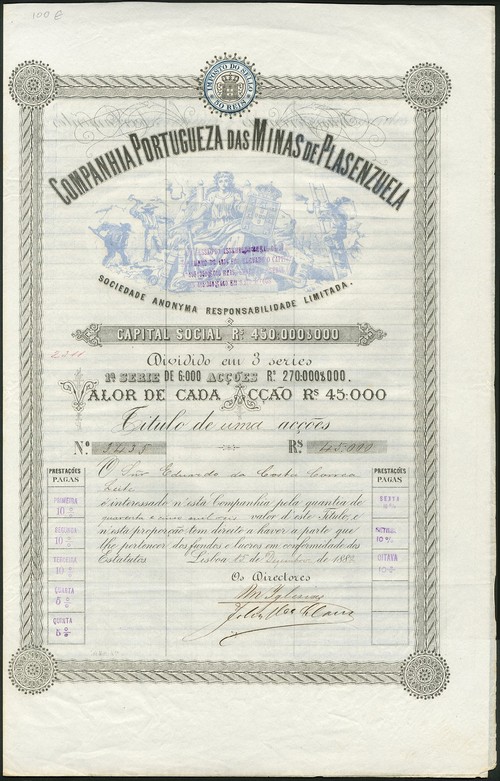 100 €
IMPOSTO DO SELLO
50 REIS
COMPANHIA PORTUGUEZA DAS MINAS DE PLASENZUELA
SOCIEDADE ANONYMA RESPONSABILIDADE LIMITADA.
CAPITAL SOCIAL Rs 450:000$000
Dividido em 3 series
1ª SERIE DE 6:000 ACÇÕES Rs. 270:000$000.
VALOR DE CADA ACÇÃO Rs 45:000
Titulo de uma acções
N.º 3435 Rs. 45.000
PRESTAÇÕES PAGAS
PRIMEIRA 10 %
SEGUNDA 10 %
TERCEIRA 10 %
QUARTA 5 %
QUINTA 5 %
O Snr Eduardo da Costa Correa
Leite
é interessado n'esta Companhia pela quantia de
quarenta e cinco mil reis valor d'este Titulo, e
n'esta proporção tem direito a haver a parte que
lhe pertencer dos fundos e lucros em conformidade dos
Estatutos Lisboa 15 de Dezembro de 188
Os Directores
PRESTAÇÕES PAGAS
SEXTA
SETIMA 10 %
OITAVA 10 %